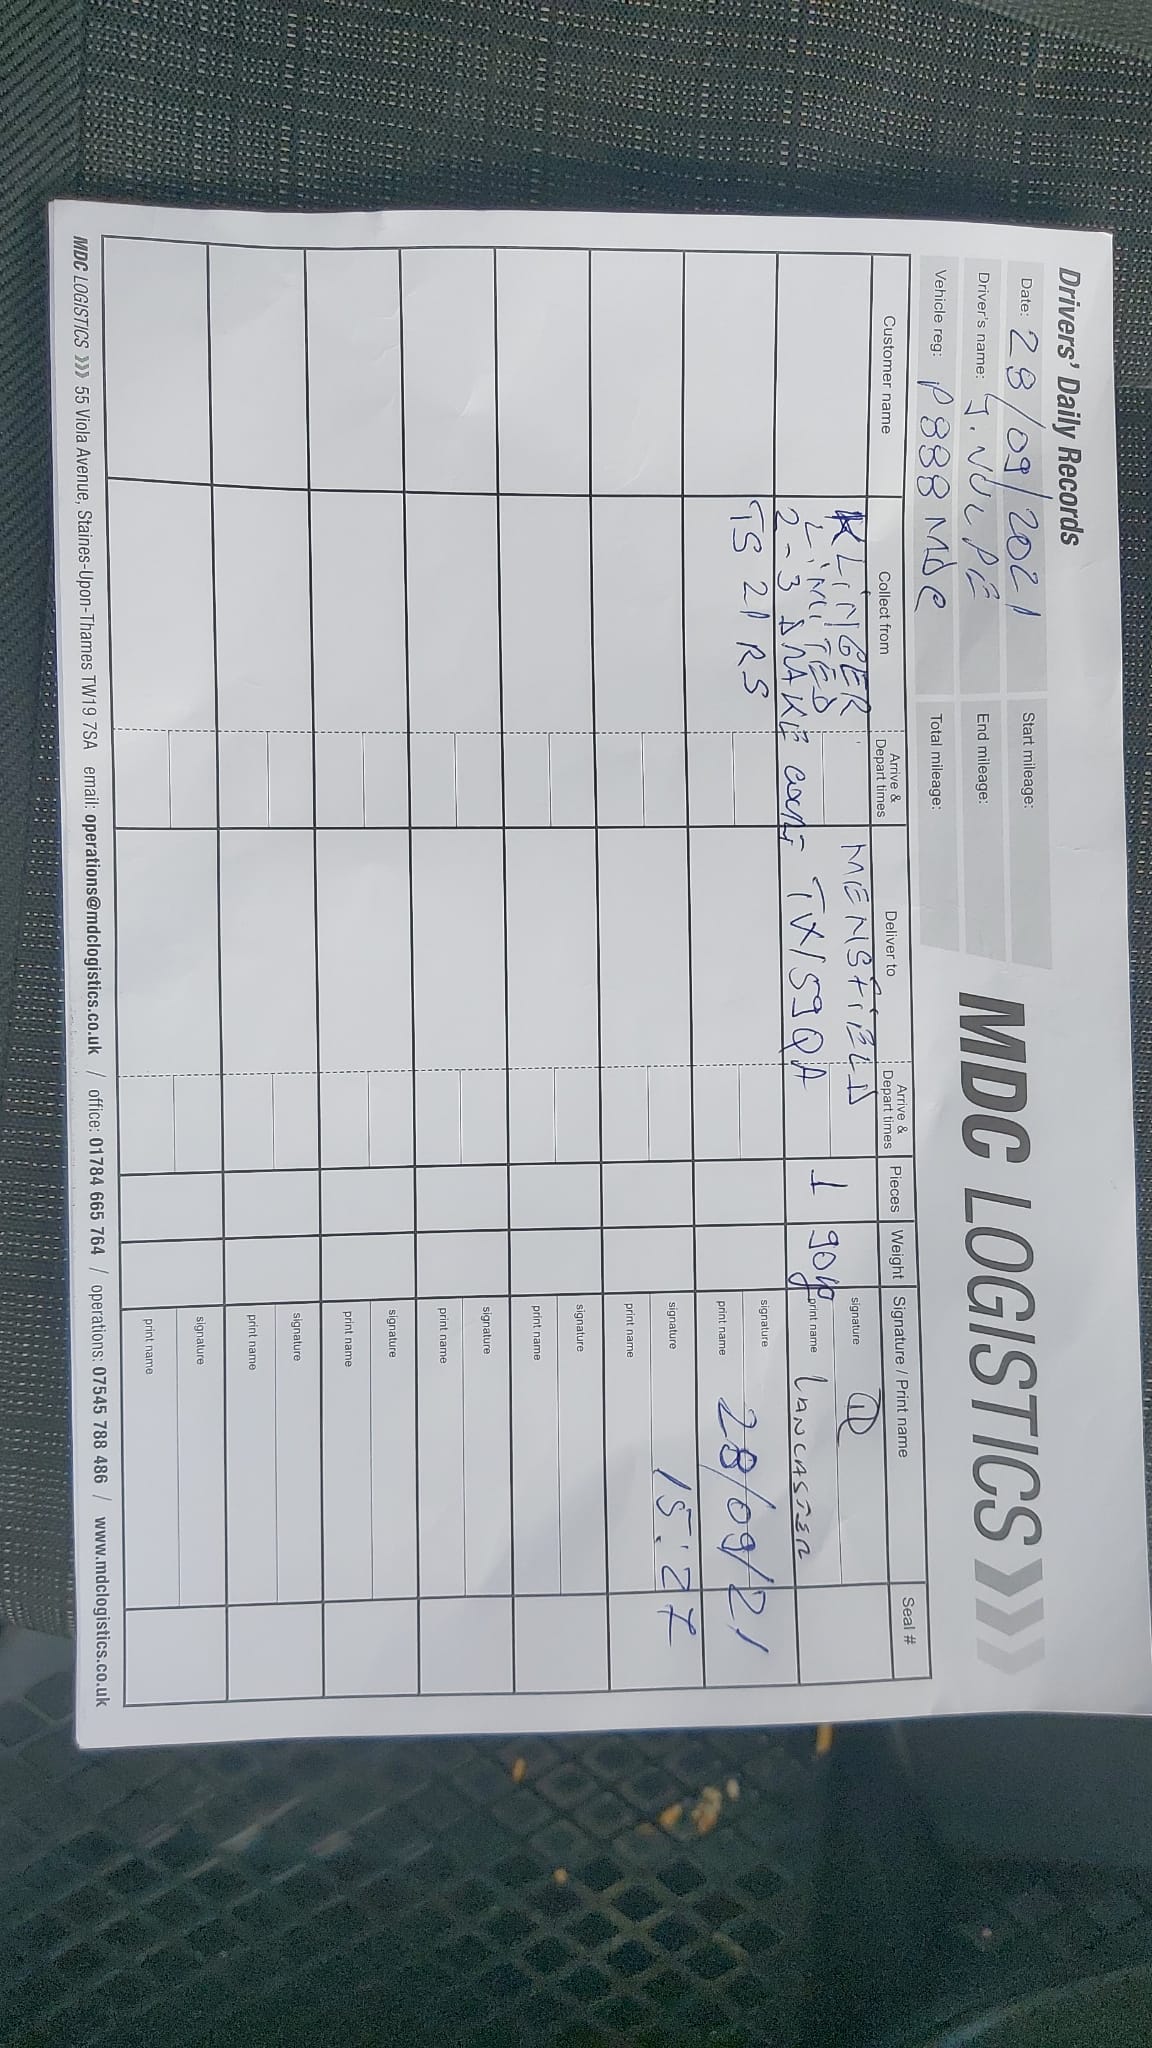 Drivers' Daily Records
MDC LOGISTICS
Date: 28/09/2021
Start mileage:
Driver's name: G. VULPE
End mileage:
Vehicle reg: P888 MDC
Total mileage:
Customer name Collect from Arrive & Depart times Deliver to Arrive & Depart times Pieces Weight Signature / Print name Seal #
KLINGER MENSFIELD signature
LIMITED 1 90kg print name LANCASTER
2-3 DRAKE COURT TX159QA
TS 21 RS signature
print name 28/09/21
signature 15:27
print name
signature
print name
signature
print name
signature
print name
signature
print name
signature
print name
MDC LOGISTICS >>> 55 Viola Avenue, Staines-Upon-Thames TW19 7SA email: operations@mdclogistics.co.uk / office: 01784 665 764 / operations: 07545 788 486 / www.mdclogistics.co.uk